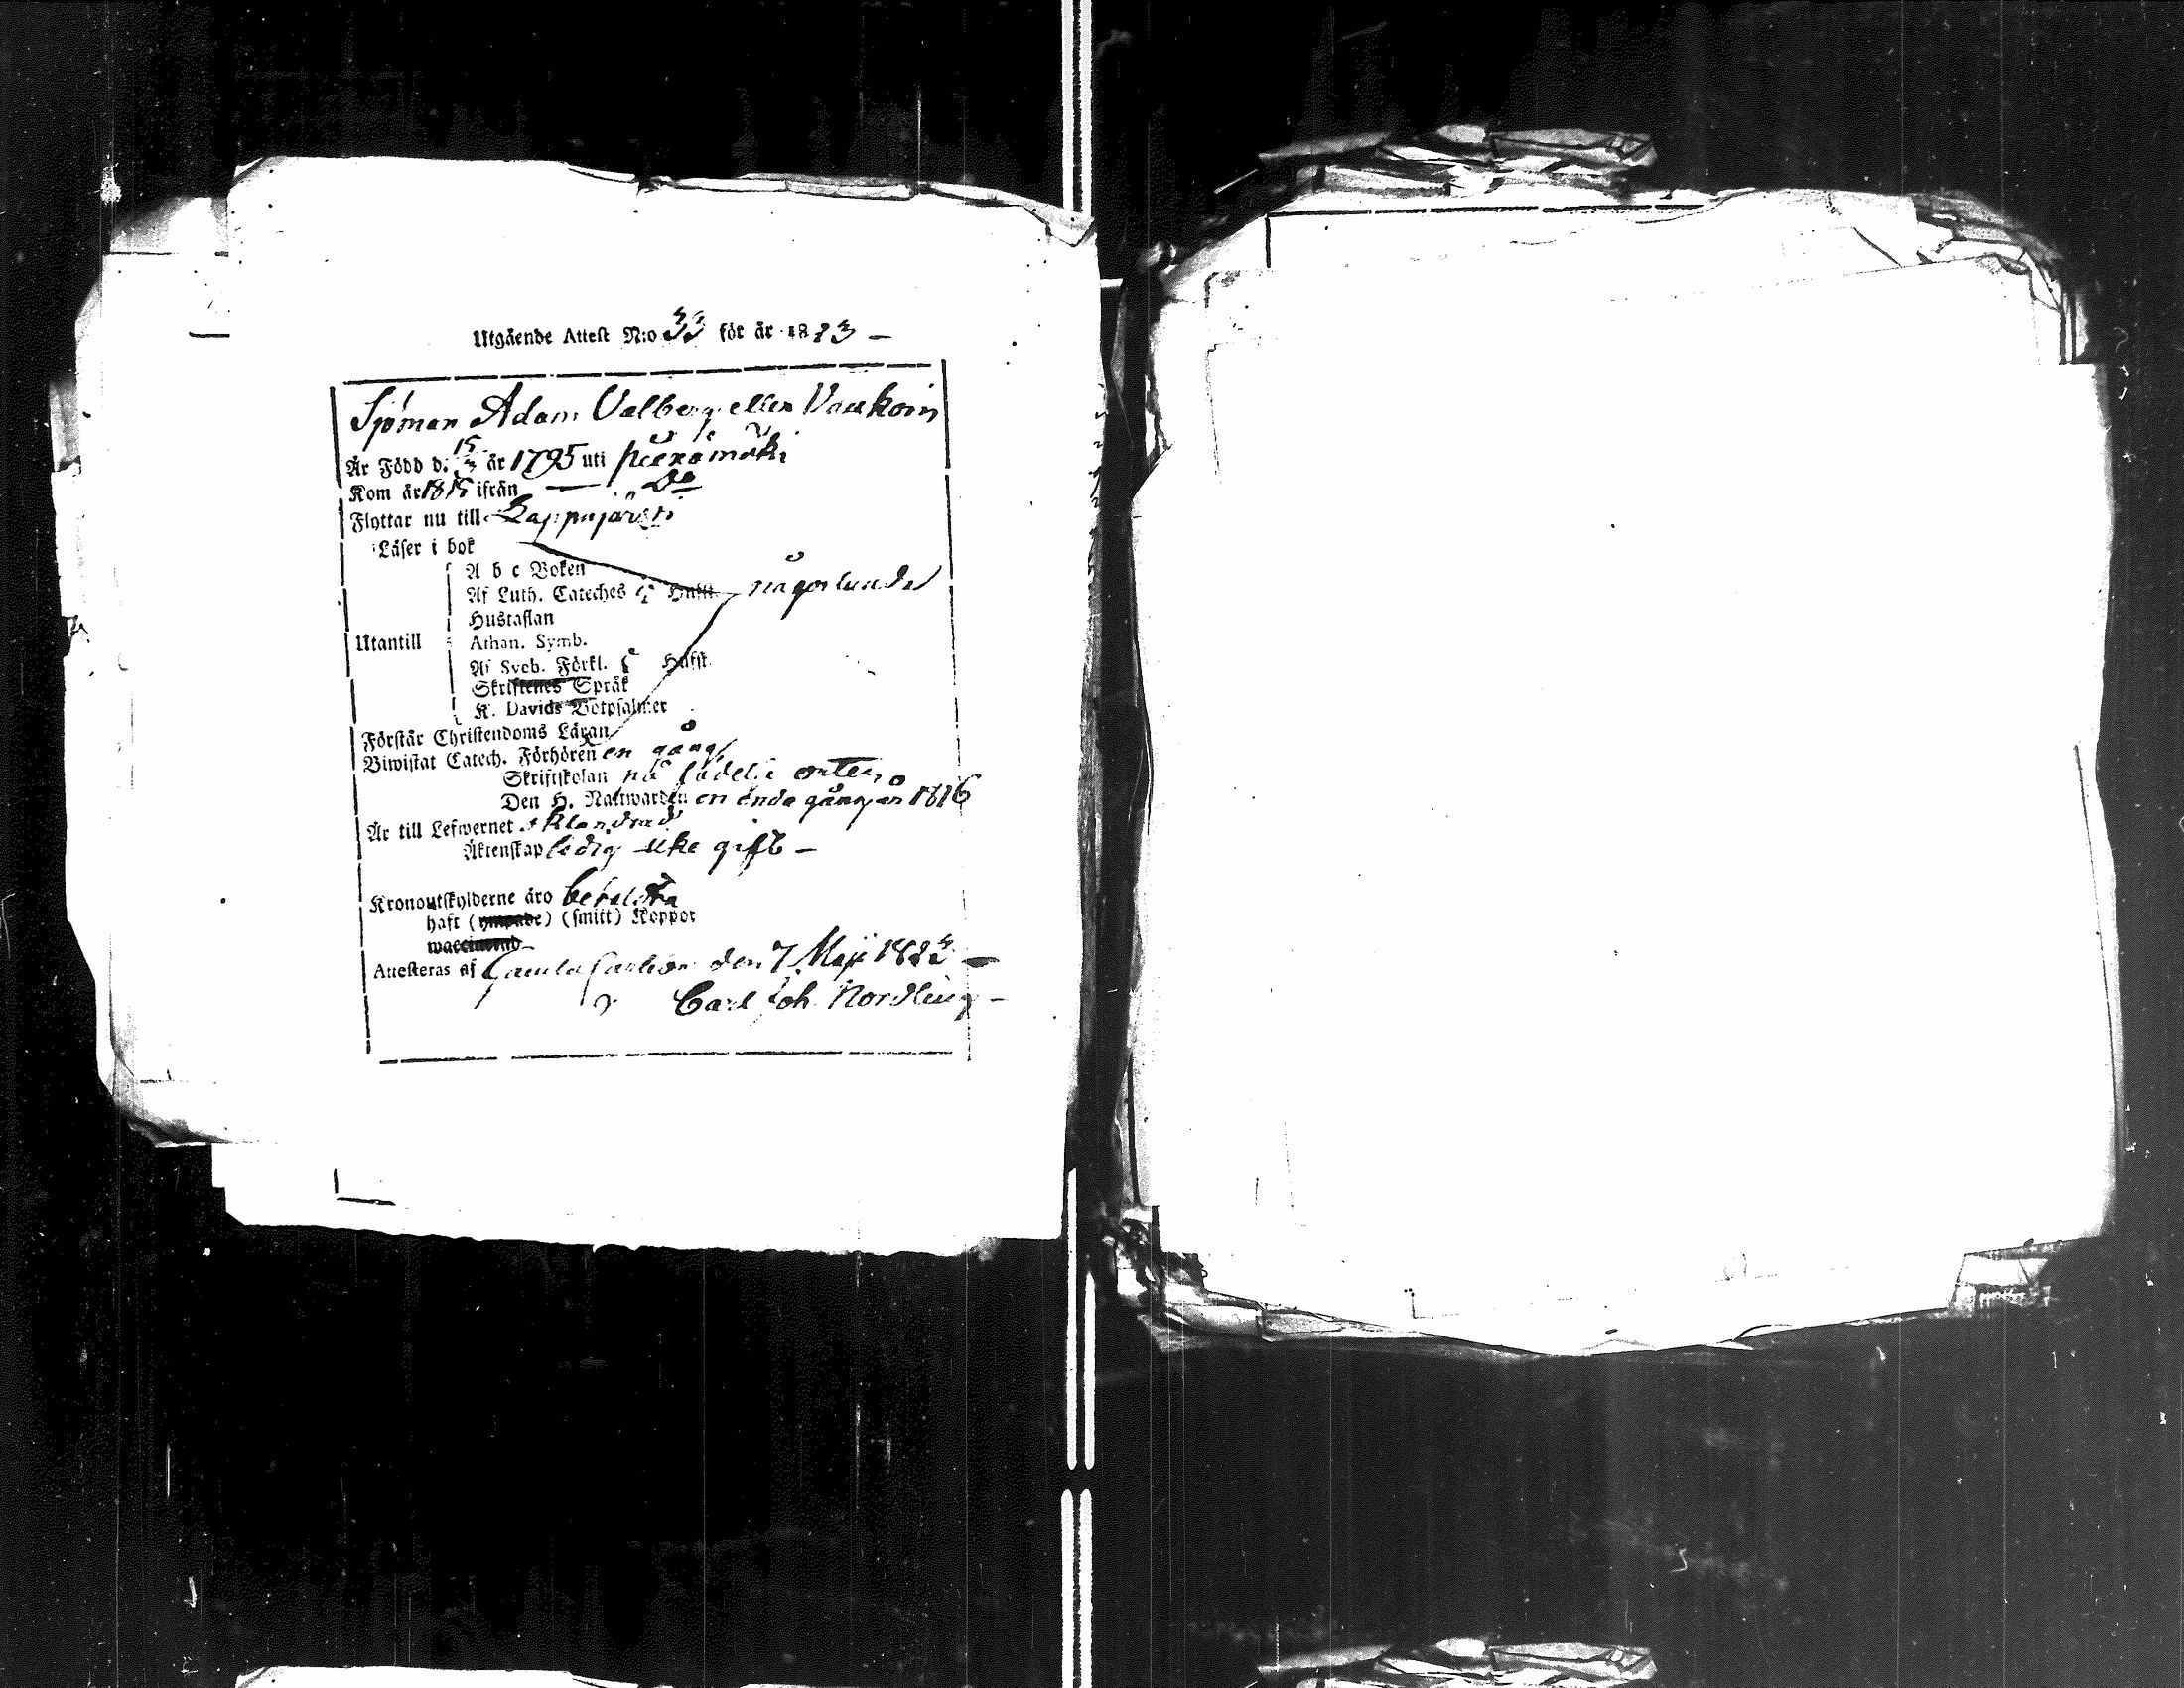 Utgående Attest N:o 33 för år 1823 —
Sjöman Adam Valberg eller Vaukoin
Är Född d. 15/3 år 1795 uti
Kom år 1815 ifrån — Do
Flyttar nu till Lappajärvi
Läser i bok
A b c Boken
någorlunda
Af Luth. Cateches Hufst.
Hustaflan
Utantill
Athan. Symb.
Af Sveb. Förkl. Hufst.
Skriftenes Språk
K. Davids Botpsalmer
Förstår Christendoms Läran
Biwistat Catech. Förhören en gång
Skriftskolan på födelse orten
Den H. Nattwarden en enda gång år 1816
Är till Lefwernet oklandrad
Äktenskap ledig icke gift —
Kronoutskylderne äro betalda
haft (ympade) (smitt) Koppor
waccinerad
Attesteras af Gamla Carleby den 7 Maji 1823 —
Carl Joh. Nordling —